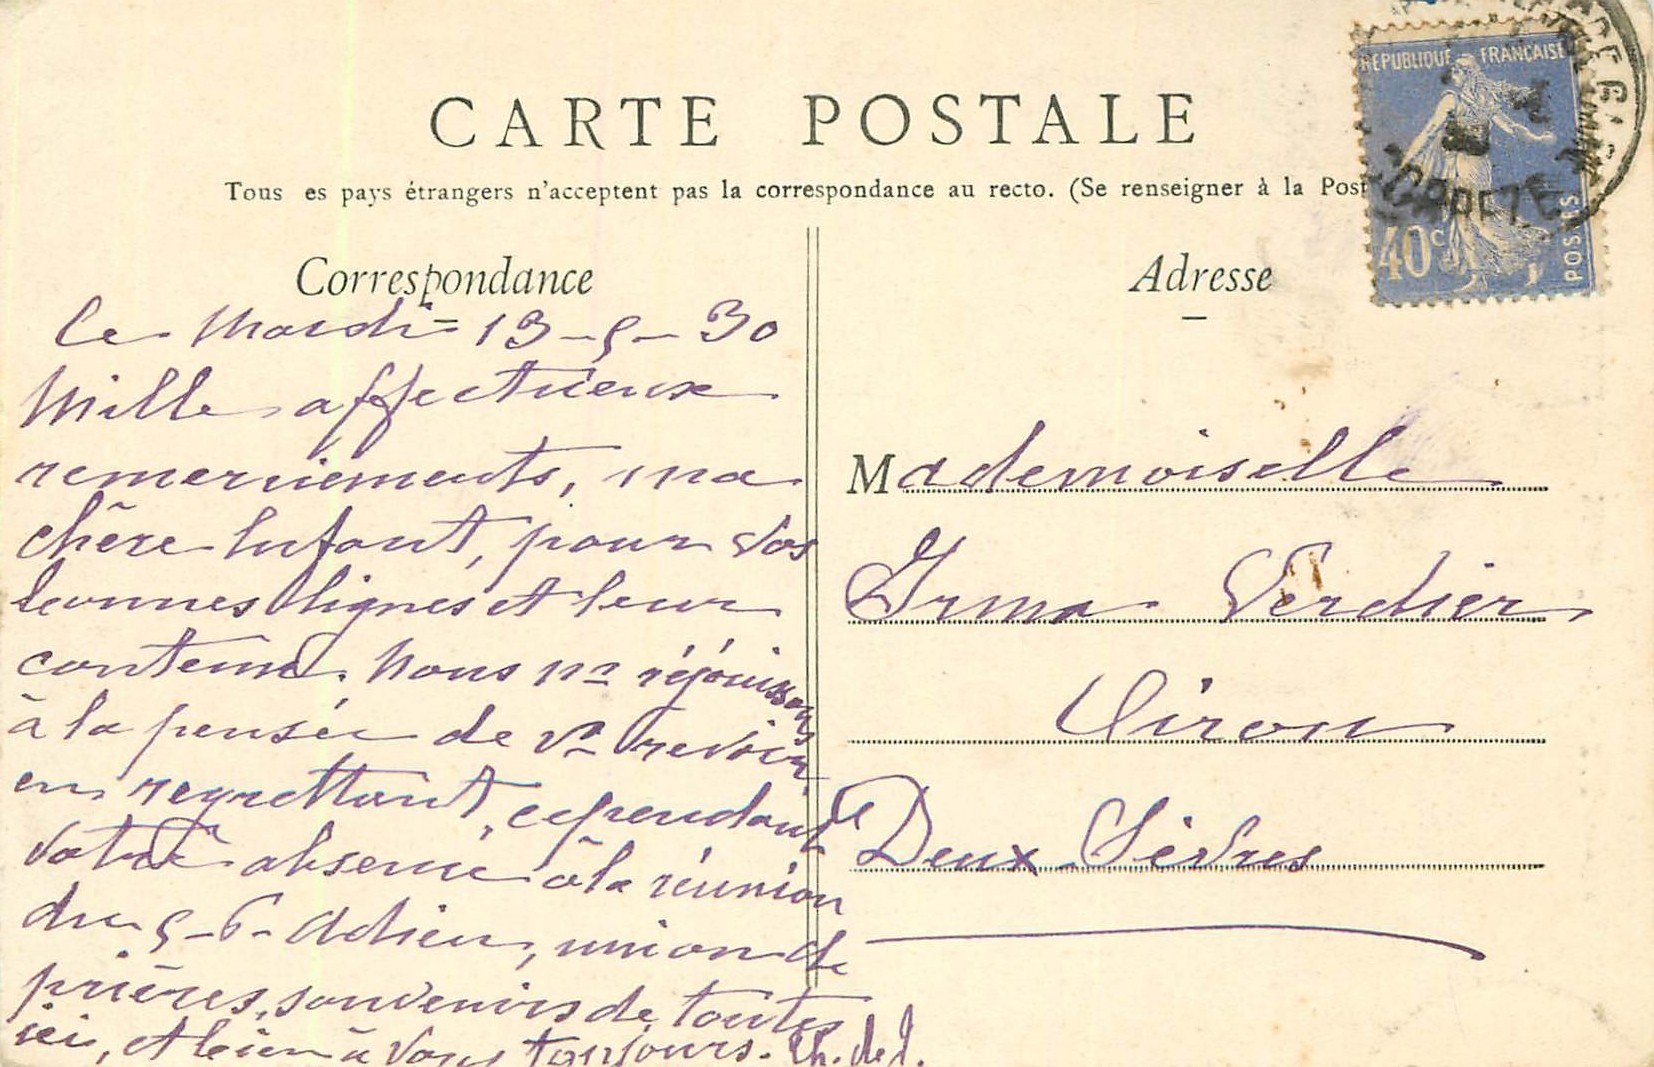 CARTE POSTALE
Tous es pays étrangers n'acceptent pas la correspondance au recto. (Se renseigner à la Post
RÉPUBLIQUE FRANÇAISE
40c
POSTES
CORREZE
Correspondance
Ce Mardi = 13-5-30
Mille affectueux
remerciements, ma
chère Enfant, pour vos
bonnes lignes et leur
contenu. Nous ns réjouissons
à la pensée de vs revoir
en regrettant, cependant
votre absence à la réunion
du 5-6. Adieu, union de
prières, souvenirs de toutes
ici, et bien à vous toujours. Ch. de J.
Adresse
Mademoiselle
Irma Verdier
Airon
Deux Sèvres